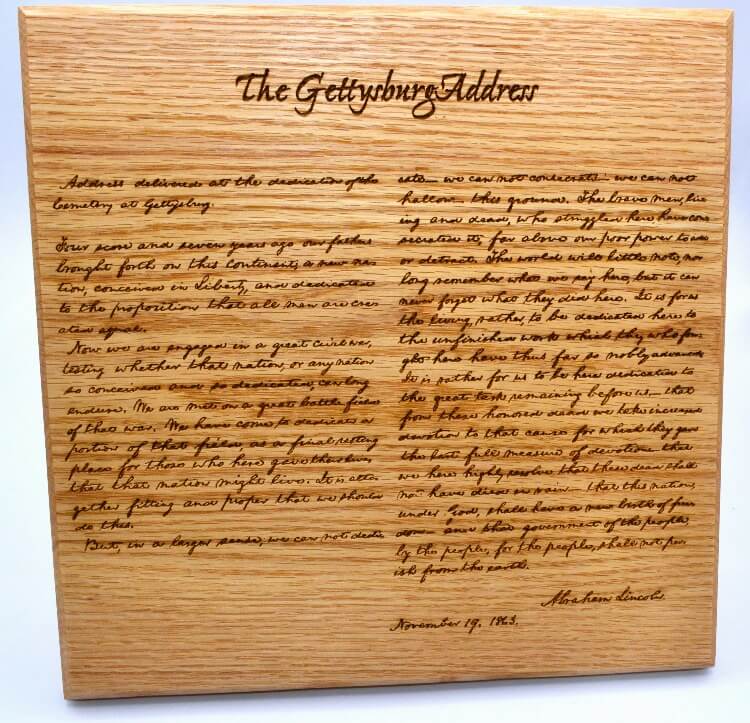 The Gettysburg Address
Address delivered at the dedication of the
Cemetery at Gettysburg.
Four score and seven years ago our fathers
brought forth on this continent, a new na-
tion, conceived in Liberty, and dedicated
to the proposition that all men are cre-
ated equal.
Now we are engaged in a great civil war,
testing whether that nation, or any nation
so conceived and so dedicated, can long
endure. We are met on a great battle field
of that war. We have come to dedicate a
portion of that field, as a final resting
place for those who here gave their lives
that that nation might live. It is alto-
gether fitting and proper that we should
do this.
But, in a larger sense, we can not dedi-
cate— we can not consecrate— we can not
hallow— this ground. The brave men, liv-
ing and dead, who struggled here have con-
secrated it, far above our poor power to add
or detract. The world will little note, nor
long remember what we say here, but it can
never forget what they did here. It is for us
the living, rather, to be dedicated here to
the unfinished work which they who fou-
ght here have thus far so nobly advanced
It is rather for us to be here dedicated to
the great task remaining before us— that
from these honored dead we take increased
devotion to that cause for which they gave
the last full measure of devotion— that
we here highly resolve that these dead shall
not have died in vain— that this nation,
under God, shall have a new birth of free-
dom— and that government of the people,
by the people, for the people, shall not per-
ish from the earth.
Abraham Lincoln.
November 19, 1863.